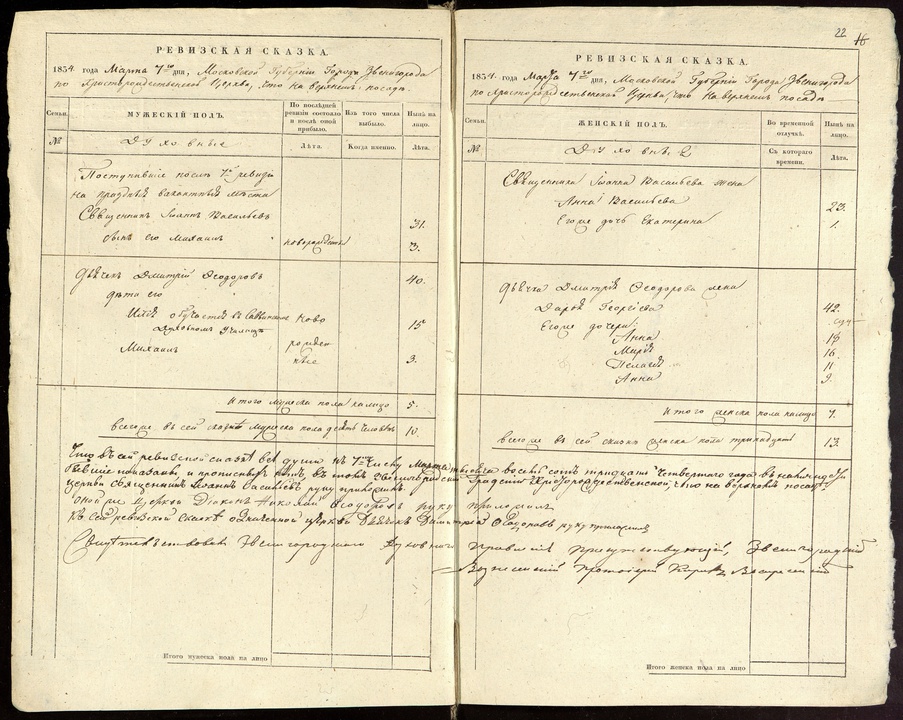 22
16
РЕВИЗСКАЯ СКАЗКА.
1834 года Марта 7го дня, Московской Губернии Города Звенигорода
по Христорождественской Церкви, что на верхнем посаде
Семьи.
МУЖЕСКІЙ ПОЛЪ.
По последней ревизіи состояло и после оной прибыло.
Изъ того числа выбыло.
Ныне на лицо.
№
Духовные
Лѣта.
Когда именно.
Лѣта.
Поступившіе после 7й ревизіи
на праздныя вакантныя места
Священникъ Іоаннъ Васильевъ
31.
сынъ его Михаилъ
новорожденъ
3.
Дьячекъ Дмитрій Ѳеодоровъ
40.
дети его
Илья обучается въ Саввинском
Ново
15
Духовномъ Училище
рожден
Михаилъ
ные
3.
Итого мужеска пола налицо
5.
всего же въ сей сказке мужеска пола десять человекъ
10.
Итого мужеска пола на лицо
РЕВИЗСКАЯ СКАЗКА.
1834 года Марта 7го дня, Московской Губерніи Города Звенигорода
по Христорождественской Церкви, что на верхнем посаде
Семьи.
ЖЕНСКІЙ ПОЛЪ.
Во временной отлучке.
Ныне на лицо.
№
Духовные
Съ котораго времени.
Лѣта.
Священника Іоанна Васильева жена
Анна Васильева
23.
Его же дочь Екатерина
1.
Дьячка Дмитрія Ѳеодорова жена
Дарья Георгіева
42.
Его же дочери:
Анна
18
Марія
16.
Пелагея
11
Анна
9.
Итого женска пола налицо
7.
всего же въ сей сказке женска пола тринадцать
13.
Что въ сей ревизской сказке все души къ 7му числу Марта тысяча восемь сотъ тридцать четвертого года в наличности
бывшіе показаны и прописныхъ нетъ, въ томъ Звенигородской Градской Христорождественской, что на верхнемъ посаде
церкви священникъ Іоаннъ Васильевъ руку приложилъ.
Оной же Церкви Діаконъ Николай Ѳеодоровъ руку приложилъ
Къ сей ревизской сказке означенной церкви Дьячекъ Димитрій Ѳеодоровъ руку приложилъ
Свидетельствовалъ Звенигородскаго Духовнаго Правленія Присутствующій, Звенигородскій
Вознесенскій Протоіерей
Итого женска пола на лицо